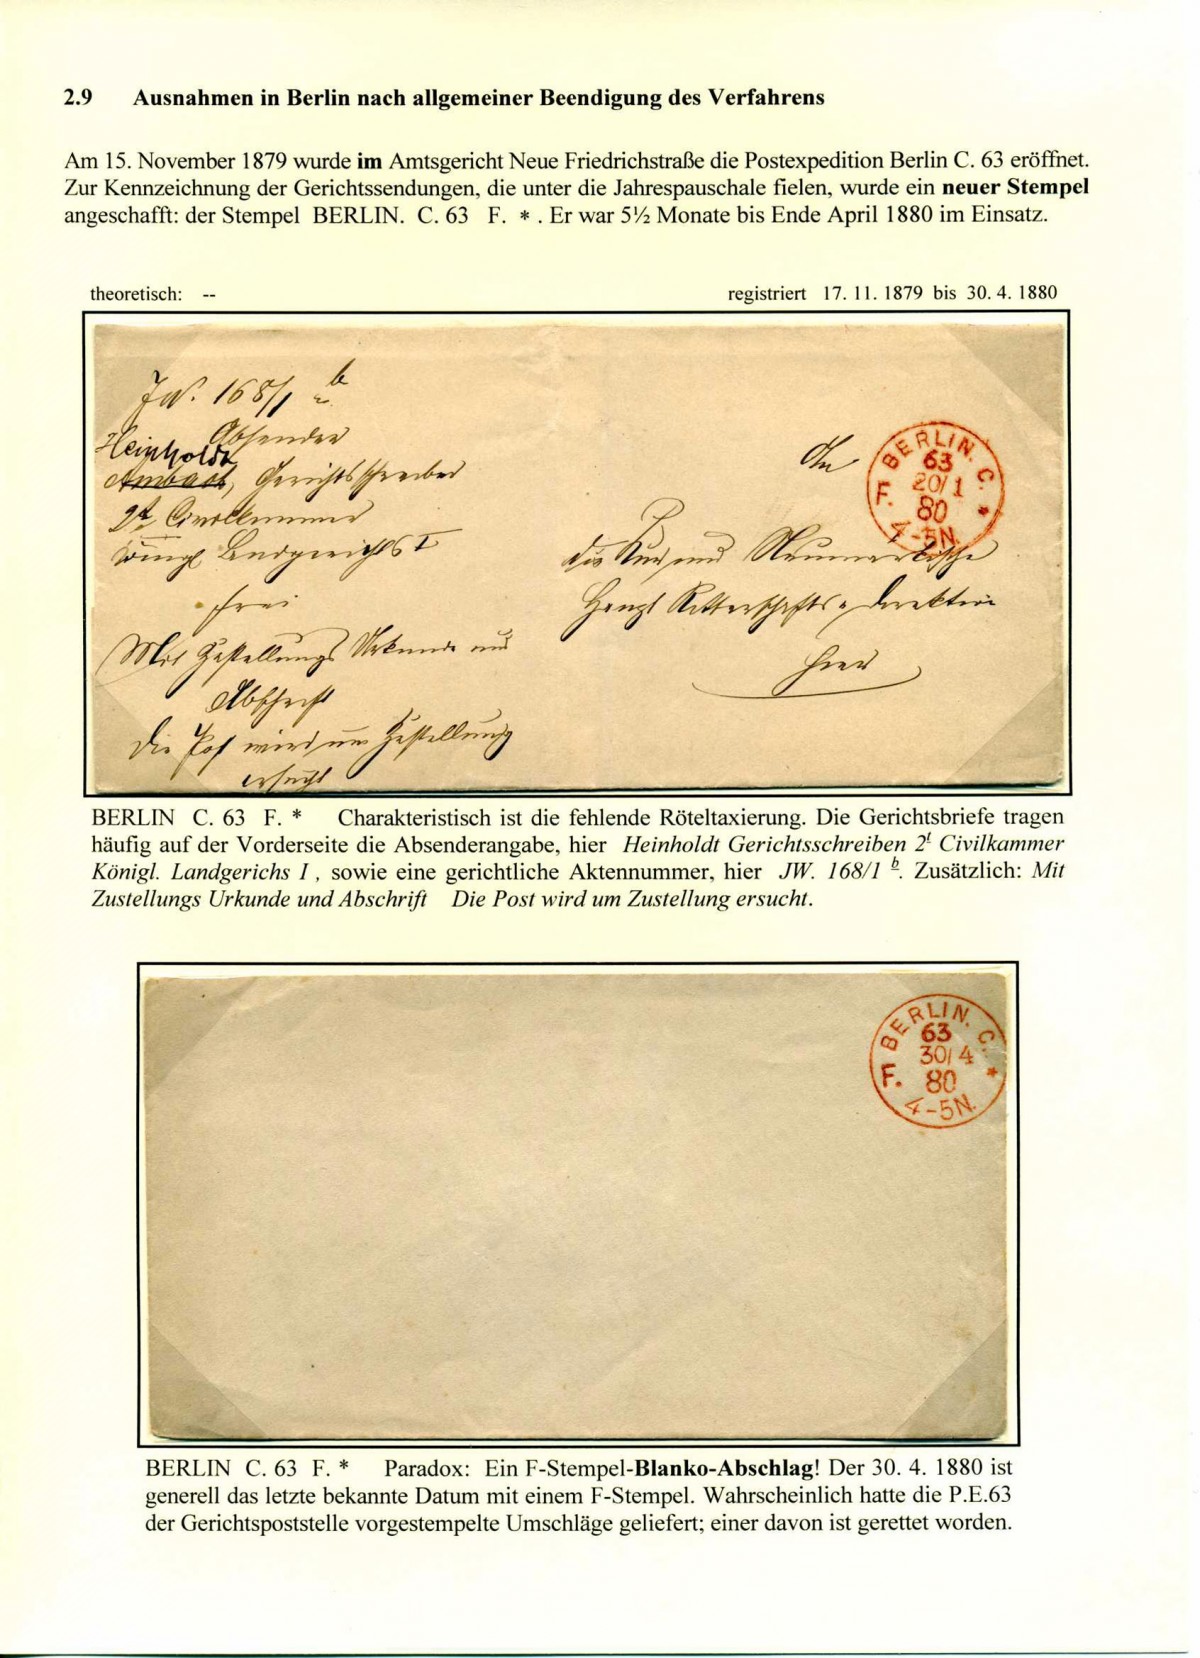 2.9 Ausnahmen in Berlin nach allgemeiner Beendigung des Verfahrens
Am 15. November 1879 wurde im Amtsgericht Neue Friedrichstraße die Postexpedition Berlin C. 63 eröffnet.
Zur Kennzeichnung der Gerichtssendungen, die unter die Jahrespauschale fielen, wurde ein neuer Stempel
angeschafft: der Stempel BERLIN. C. 63 F. * . Er war 5½ Monate bis Ende April 1880 im Einsatz.
theoretisch: --
registriert 17. 11. 1879 bis 30. 4. 1880
JW. 168/1 b
Absender
Heinholdt
Ambach, Gerichtsschreiber
2t Civilkammer
Königl Landgerichts I
frei
Mit Zustellungs Urkunde und
Abschrift
Die Post wird um Zustellung
ersucht
An
die Kur und Neumärkische
Ritterschafts-Direktion
hier
BERLIN. C.
63
20/1
80
F. *
4-5N.
BERLIN C. 63 F. * Charakteristisch ist die fehlende Röteltaxierung. Die Gerichtsbriefe tragen
häufig auf der Vorderseite die Absenderangabe, hier Heinholdt Gerichtsschreiben 2t Civilkammer
Königl. Landgerichs I , sowie eine gerichtliche Aktennummer, hier JW. 168/1 b. Zusätzlich: Mit
Zustellungs Urkunde und Abschrift Die Post wird um Zustellung ersucht.
BERLIN. C.
63
30/4
80
F. *
4-5N.
BERLIN C. 63 F. * Paradox: Ein F-Stempel-Blanko-Abschlag! Der 30. 4. 1880 ist
generell das letzte bekannte Datum mit einem F-Stempel. Wahrscheinlich hatte die P.E.63
der Gerichtspoststelle vorgestempelte Umschläge geliefert; einer davon ist gerettet worden.